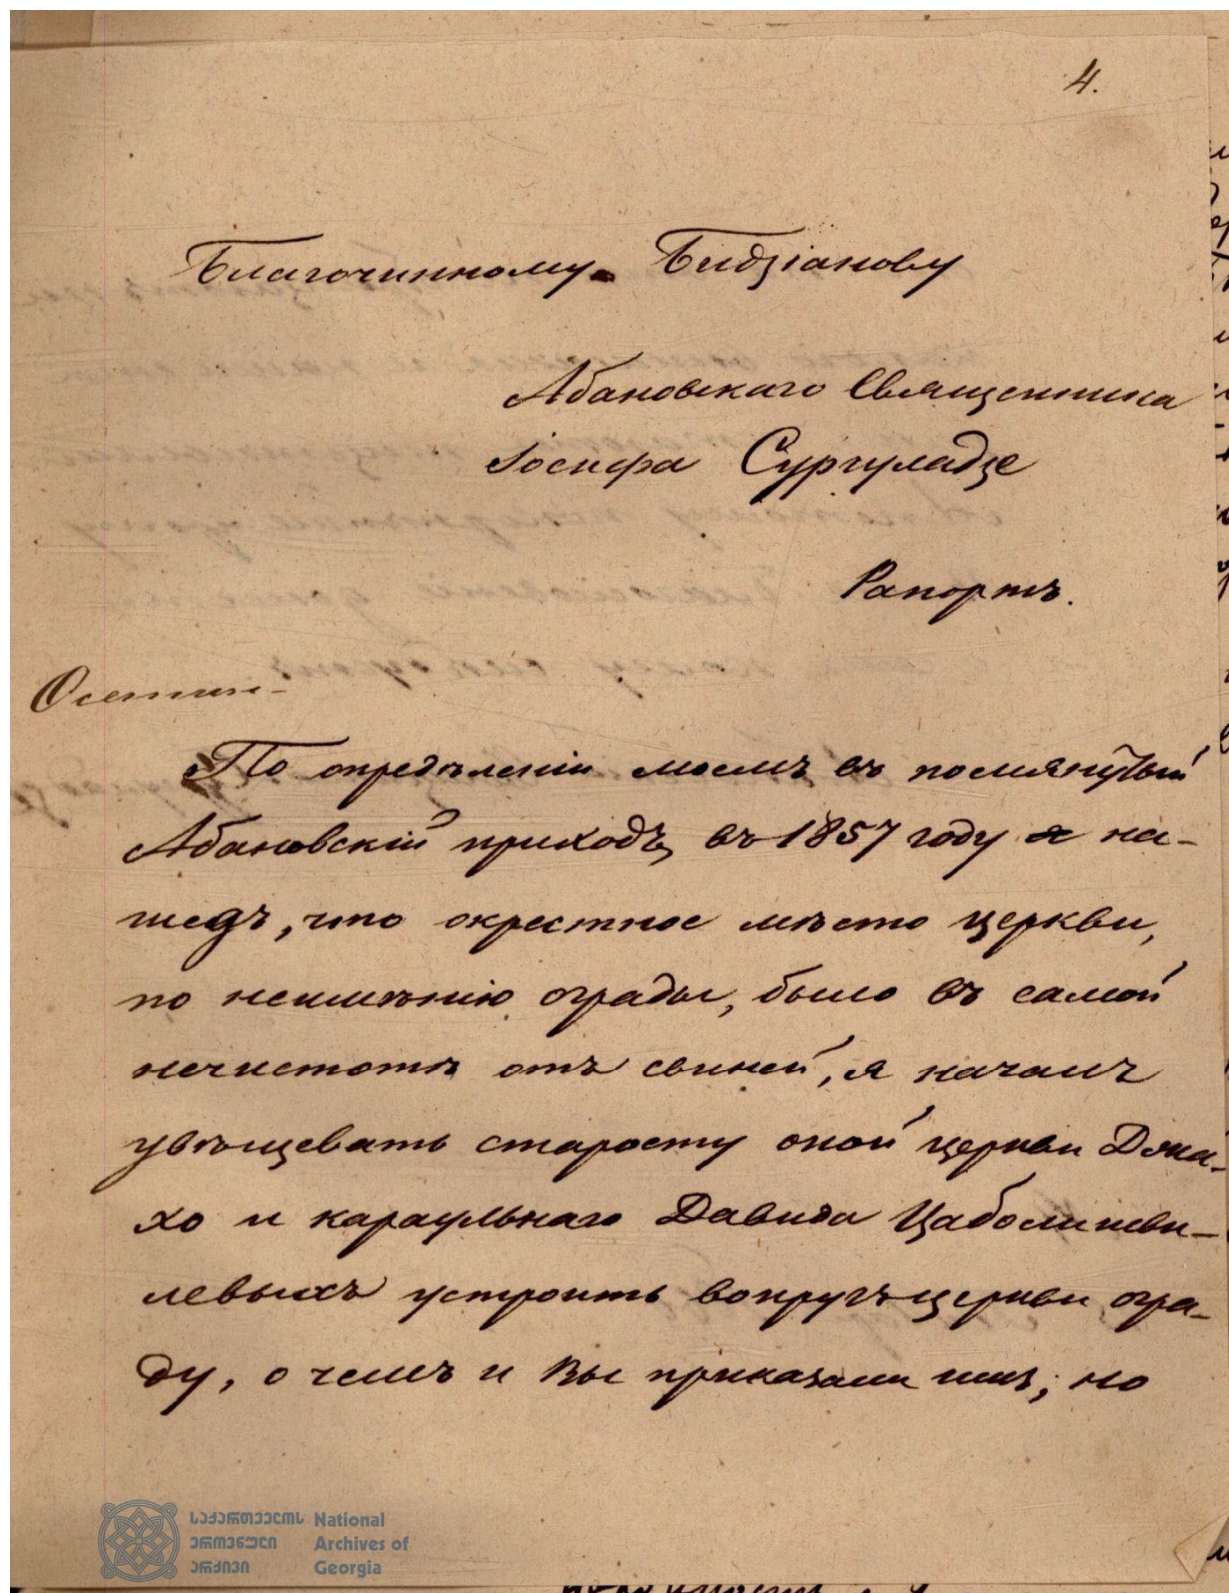 4.
Благочинному Бидзіанову
Абановскаго Священника
Іосифа Сургуладзе
Рапортъ.
Осетин-
По опредѣленіи моемъ въ помянутый
Абановскій приходъ, въ 1857 году я на-
шедъ, что окрестное мѣсто церкви,
по неимѣнію ограды, было въ самой
нечистотѣ отъ свиней, я началъ
увѣщевать старосту оной церкви Джа-
хо и караульнаго Давида Цаболишви-
левыхъ устроить вокругъ церкви огра-
ду, о чемъ и Вы приказали имъ, но
საქართველოს National
ეროვნული Archives of
არქივი Georgia